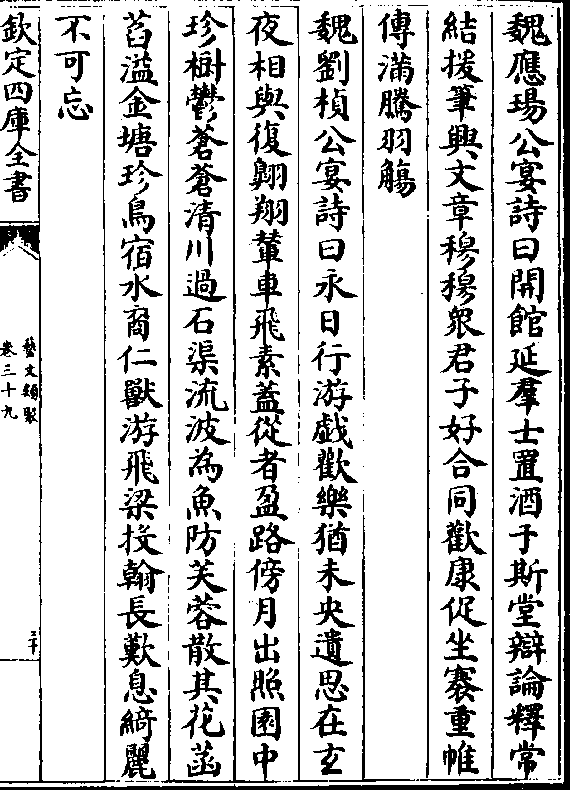 魏應瑒公宴詩曰開館延羣士置酒于斯堂辯論釋常
結援筆興文章穆穆衆君子好合同歡康促坐褰重帷
傳滿騰羽觴
魏劉楨公宴詩曰永日行游戲歡樂猶未央遺思在玄
夜相與復翺翔輦車飛素蓋從者盈路傍月出照園中
珍樹鬱蒼蒼清川過石渠流波為魚防芙蓉散其花菡
萏溢金塘珍鳥宿水裔仁獸游飛梁投翰長歎息綺麗
不可忘
欽定四庫全書
藝文類聚
卷三十九
二十